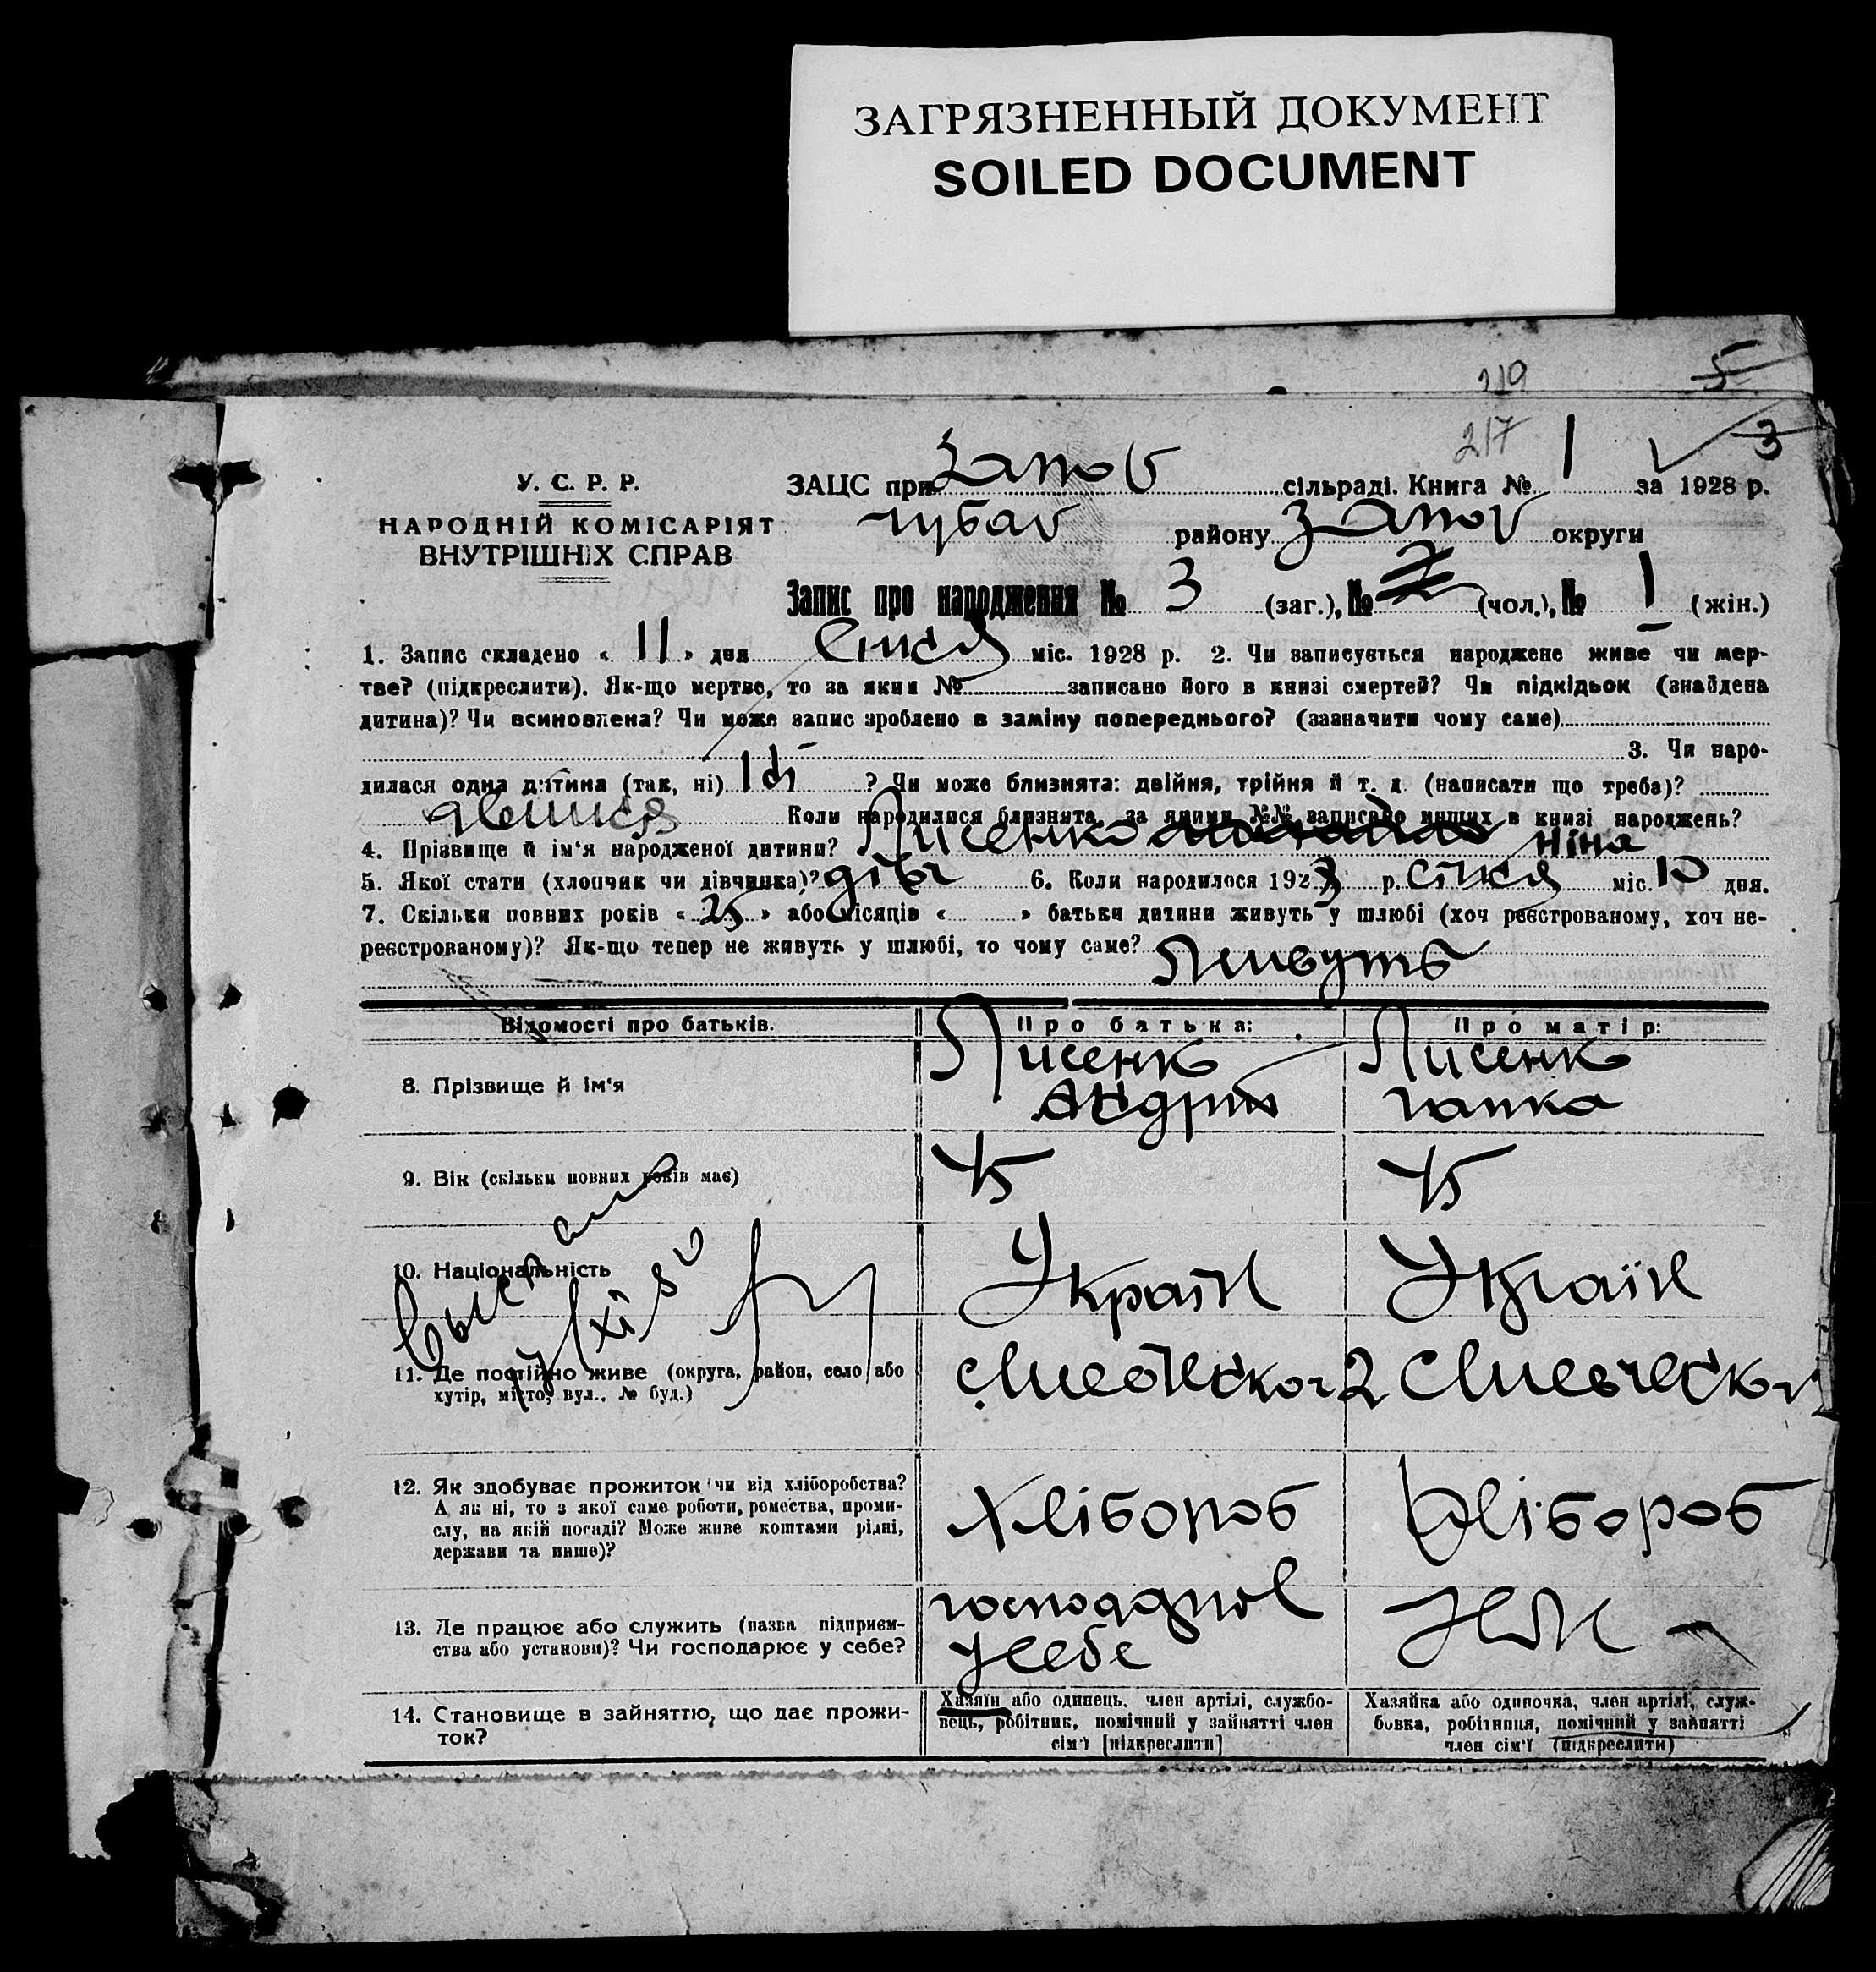 ЗАГРЯЗНЕННЫЙ ДОКУМЕНТ
SOILED DOCUMENT
219 5
217 3
У. С. Р. Р.
НАРОДНІЙ КОМІСАРІЯТ
ВНУТРІШНІХ СПРАВ
ЗАЦС при сільраді. Книга № 1 за 1928 р.
району округи
Запис про народження № 3 (заг.), № (чол.), № 1 (жін.)
1. Запис складено « 11 » дня міс. 1928 р. 2. Чи записується народжене живе чи мер-
тве? (підкреслити). Як-що мертве, то за яким № записано його в книзі смертей? Чи підкідьок (знайдена
дитина)? Чи всиновлена? Чи може запис зроблено в заміну попереднього? (зазначити чому саме)
3. Чи наро-
дилася одна дитина (так, ні) ? Чи може близнята: двійня, трійня й т. д. (написати що треба)?
Коли народилися близнята, за якими №№ записано инших в книзі народжень?
4. Прізвище й ім'я народженої дитини? Лисенко Ніна
5. Якої стати (хлопчик чи дівчинка)? дівч 6. Коли народилося 192 р. міс. 10 дня.
7. Скільки повних років « 25 » або місяців « » батьки дитини живуть у шлюбі (хоч реєстрованому, хоч не-
реєстрованому)? Як-що тепер не живуть у шлюбі, то чому саме? Живуть
Відомості про батьків. Про батька: Про матір:
8. Прізвище й ім'я Лисенко Лисенко
Андрій Гапка
9. Вік (скільки повних років має) 45 45
10. Національність Україн Україн
11. Де постійно живе (округа, район, село або
хутір, місто, вул., № буд.)
12. Як здобуває прожиток (чи від хліборобства?
А як ні, то з якої саме роботи, ремества, проми-
слу, на якій посаді? Може живе коштами рідні,
держави та инше)?
Хлібороб Хлібороб
13. Де працює або служить (назва підприєм-
ства або установи)? Чи господарює у себе?
у себе
14. Становище в зайняттю, що дає прожи-
ток?
Хазяїн або одинець, член артілі, службо-
вець, робітник, помічний у зайнятті член
сім'ї [підкреслити]
Хазяйка або одиночка, член артілі, служ-
бовка, робітниця, помічний у зайнятті
член сім'ї (підкреслити)